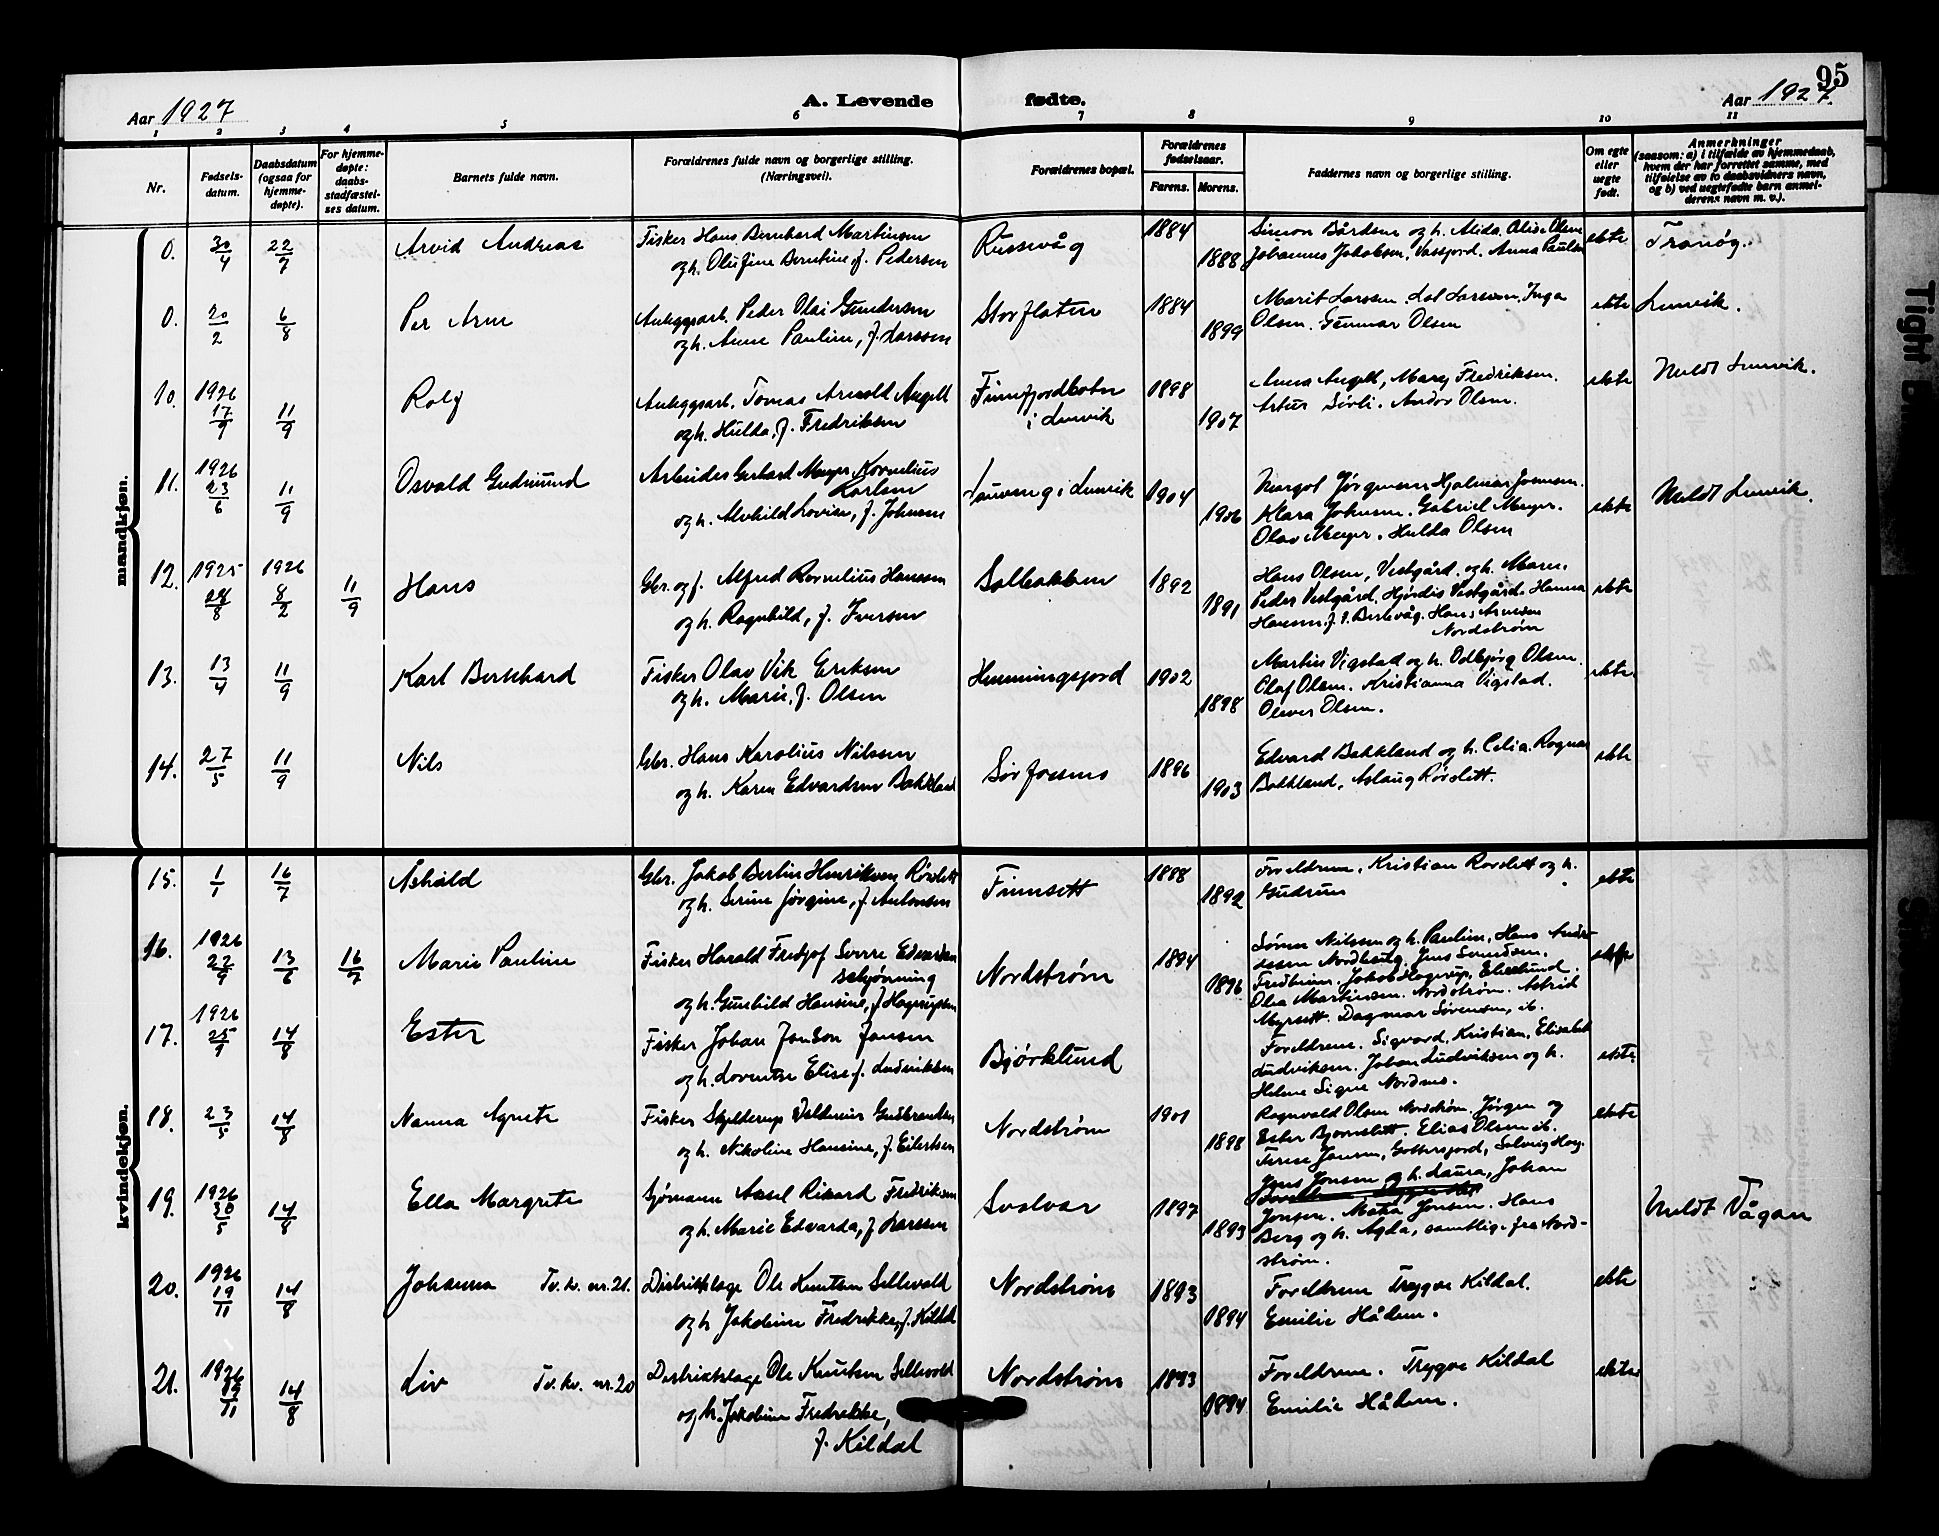 95
Aar 1927
A. Levende fødte.
Aar 1927.
1 2 3 4 5 6 7 8 9 10 11
Nr.
Fødsels-
datum.
Daabsdatum
(ogsaa for
hjemme-
døpte).
For hjemme-
døpte:
daabs-
stadfæstel-
ses datum.
Barnets fulde navn.
Forældrenes fulde navn og borgerlige stilling.
(Næringsvei).
Forældrenes bopæl.
Forældrenes
fødselsaar.
Farens. Morens.
Faddernes navn og borgerlige stilling.
Om egte
eller
uegte
født.
Anmerkninger
(saasom: a) i tilfælde av hjemmedaab,
hvem der har forrettet samme, med
tilføielse av to daabsvidners navn,
og b) ved uegtefødte barn anmel-
derens navn m. v.).
mandkjøn.
0. 30/4 22/7 Arvid Andreas Fisker Hans Bernhard Martinsen Russevåg 1884 Simon Bårdsen og h. Alida. Olise Olsen ekte Tranøy.
og h. Olufine Berntine, f. Pedersen 1888 Johannes Jakobsen, Vassfjord. Anna Paulsen
0. 20/2 6/8 Per Arne Anleggsarb. Peder Olai Gundersen Storflaten 1884 Marit Larssen. Lol Larssen, Inga ekte Lenvik.
og h. Anne Pauline, f. Larssen 1899 Olsen. Gunnar Olsen
10. 1926 17/9 11/9 Rolf Anleggsarb. Tomas Arnold Angell Finnfjordbotn 1898 Anna Angell, Mary Fredriksen. ekte Meldt Lenvik.
og h. Hulda, f. Fredriksen i Lenvik 1907 Artur Sörli. Andor Olsen.
11. 1926 23/6 11/9 Osvald Gudmund Arbeider Gerhard Meyer Kornelius
Karlsen
i Lenvik 1904 Margot Jørgensen Hjalmar Joensen. ekte Meldt Lenvik.
og h. Alvhild Lovise, f. Johnsen 1906 Klara Johnsen. Gabriel Meyer.
Olav Meyer. Hulda Olsen
12. 1925 28/8 1926 8/2 11/9 Hans Gbr. og f. Alfred Kornelius Hanssen Solbakken 1892 Hans Olsen, Vestgård. og h. Maren. ekte
og h. Ragnhild, f. Iversen 1891 Peder Vestgård. Hjørdis Vestgård. Hanna
Hansen. f. i. Berlevåg. Hans Arnesen
Nordstrøm
13. 13/4 11/9 Karl Bernhard Fisker Olav Vik Eriksen Henningsfjord 1902 Martin Vigstad og h. Odbjørg Olsen. ekte
og h. Marie, f. Olsen 1898 Olaf Olsen. Kristianna Vigstad.
Oliver Olsen.
14. 27/5 11/9 Nils Gbr. Hans Karolius Nilssen Sörfossmo 1896 Edvard Bakkland og h. Celia. Ragna ekte
og h. Karen Edvardsen Bakkland 1903 Bakkland, Aslaug Rörslett.
kvindekjøn.
15. 1/1 16/7 Åshild Gbr. Jakob Bertin Henriksen Rörslett Finnsett 1888 Foreldrene, Kristian Rørslett og h. ekte
og h. Serine Jörgine, f. Antonsen 1892 Gudrun
16. 1926 22/9 13/6 16/7 Marie Pauline Fisker Harald Fredjof Sverre Edvardsen
Schjønning
Nordstrøm 1894 Sören Nilssen og h. Pauline, Hans Andre-
og h. Gunhild Hansine, f. Hagerupsen 1896 assen Nordhaug. Jens Svendsen, ekte
Fredheim. Jakob Hagerup, Elvelund.
Olea Martinsen. Nordstrøm. Astrid
Myrsett. Dagmar Sörensen, ib.
17. 1926 25/9 14/8 Ester Fisker Johan Jonson Jonsen Björklund Foreldrene. Sigvard, Kristian, Elisabet ekte
og h. Lorentse Elise f. Ludvikken Ludviksen. Johan Ludviksen og h.
Helene Signe Nordmo.
18. 23/5 14/8 Nanna Agnete Fisker Skjelderup Valdemar Gudbrandsen Nordstrøm 1901 Ragnvald Olsen Nordstrøm. Jörgen og ekte
og h. Nikoline Hansine, f. Eilertsen 1898 Ester Bjørnslett. Elias Olsen ib.
Terese Jonsen, Gottesfjord, Solveig Hog-
19. 1926 30/5 14/8 Ella Margrete Sjømann Aksel Rikard Fredriksen Svolvær 1897 Jens Jonsen og h. Laura, Johan Meldt Vågan
og h. Marie Edvarda, f. Larssen 1893 Jonsen. Mata Jonsen. Hans
Berg og h. Agda, samtlige fra Nord-
strøm.
20. 1926 19/11 14/8 Johanna Tv. kv. nr. 21. Distriktslege Ole Knutsen Sellevold Nordstrøm 1893 Foreldrene Trygve Kildal. ekte
og h. Jakobine Fredrikke, f. Kildal 1894 Emilie Hådem.
21. 1926 19/11 14/8 Liv Tv. kv. nr. 20 Distriktslege Ole Knutsen Sellevold Nordstrøm 1893 Foreldrene. Trygve Kildal ekte
og h. Jakobine Fredrikke, 1894 Emilie Hådem.
f. Kildal
Tight